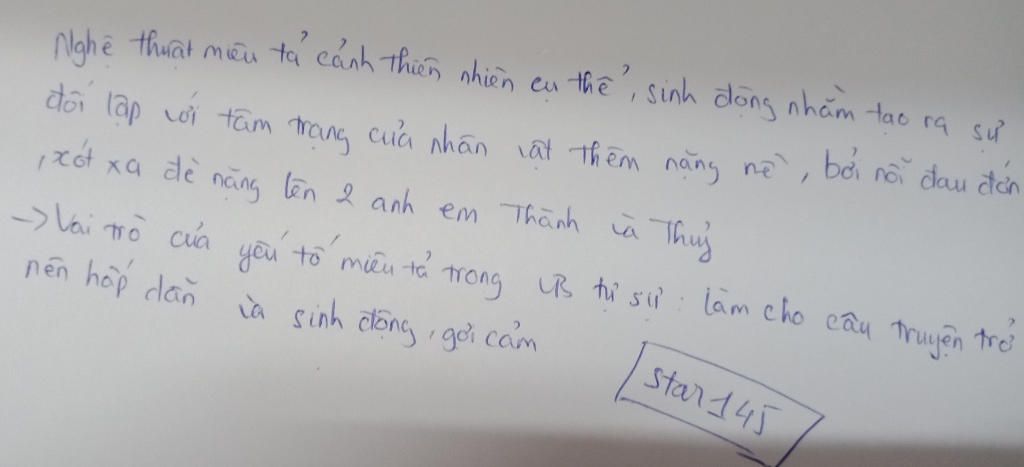 Nghệ thuật miêu tả cảnh thiên nhiên cụ thể, sinh động nhằm tạo ra sự
đối lập với tâm trạng của nhân vật thêm nặng nề, bởi nỗi đau đớn
, xót xa đè nặng lên 2 anh em Thành và Thuỷ
-> Vai trò của yếu tố miêu tả trong VB tự sự: làm cho câu truyện trở
nên hấp dẫn và sinh động, gợi cảm
star145